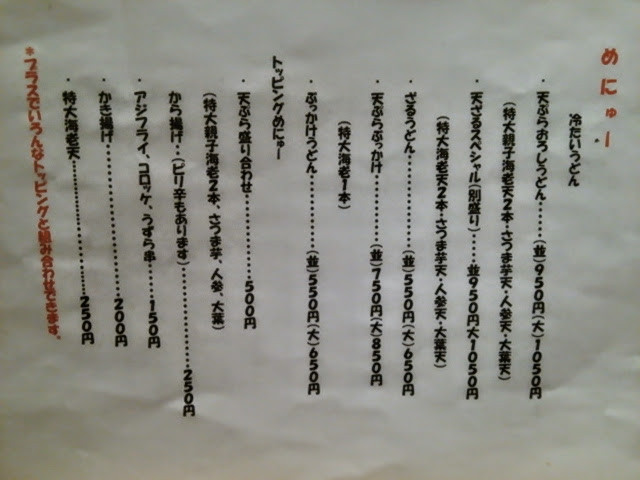 めにゅー
冷たいうどん
・天ぷらおろしうどん……(並)950円(大)1050円
(特大親子海老天2本・さつま芋天・人参天・大葉天)
・天ざるスペシャル(別盛り)……並950円大1050円
(特大海老天2本・さつま芋天・人参天・大葉天)
・ざるうどん…………(並)550円(大)650円
・天ぷらぶっかけ…………(並)750円(大)850円
(特大海老1本)
・ぶっかけうどん…………(並)550円(大)650円
トッピングめにゅー
・天ぷら盛り合わせ…………500円
(特大親子海老2本、さつま芋、人参、大葉)
から揚げ…(ピリ辛もあります)…………250円
・アジフライ、コロッケ、うずら串……150円
・かき揚げ…………200円
・特大海老天…………250円
*プラスでいろんなトッピングと組み合わせできます。